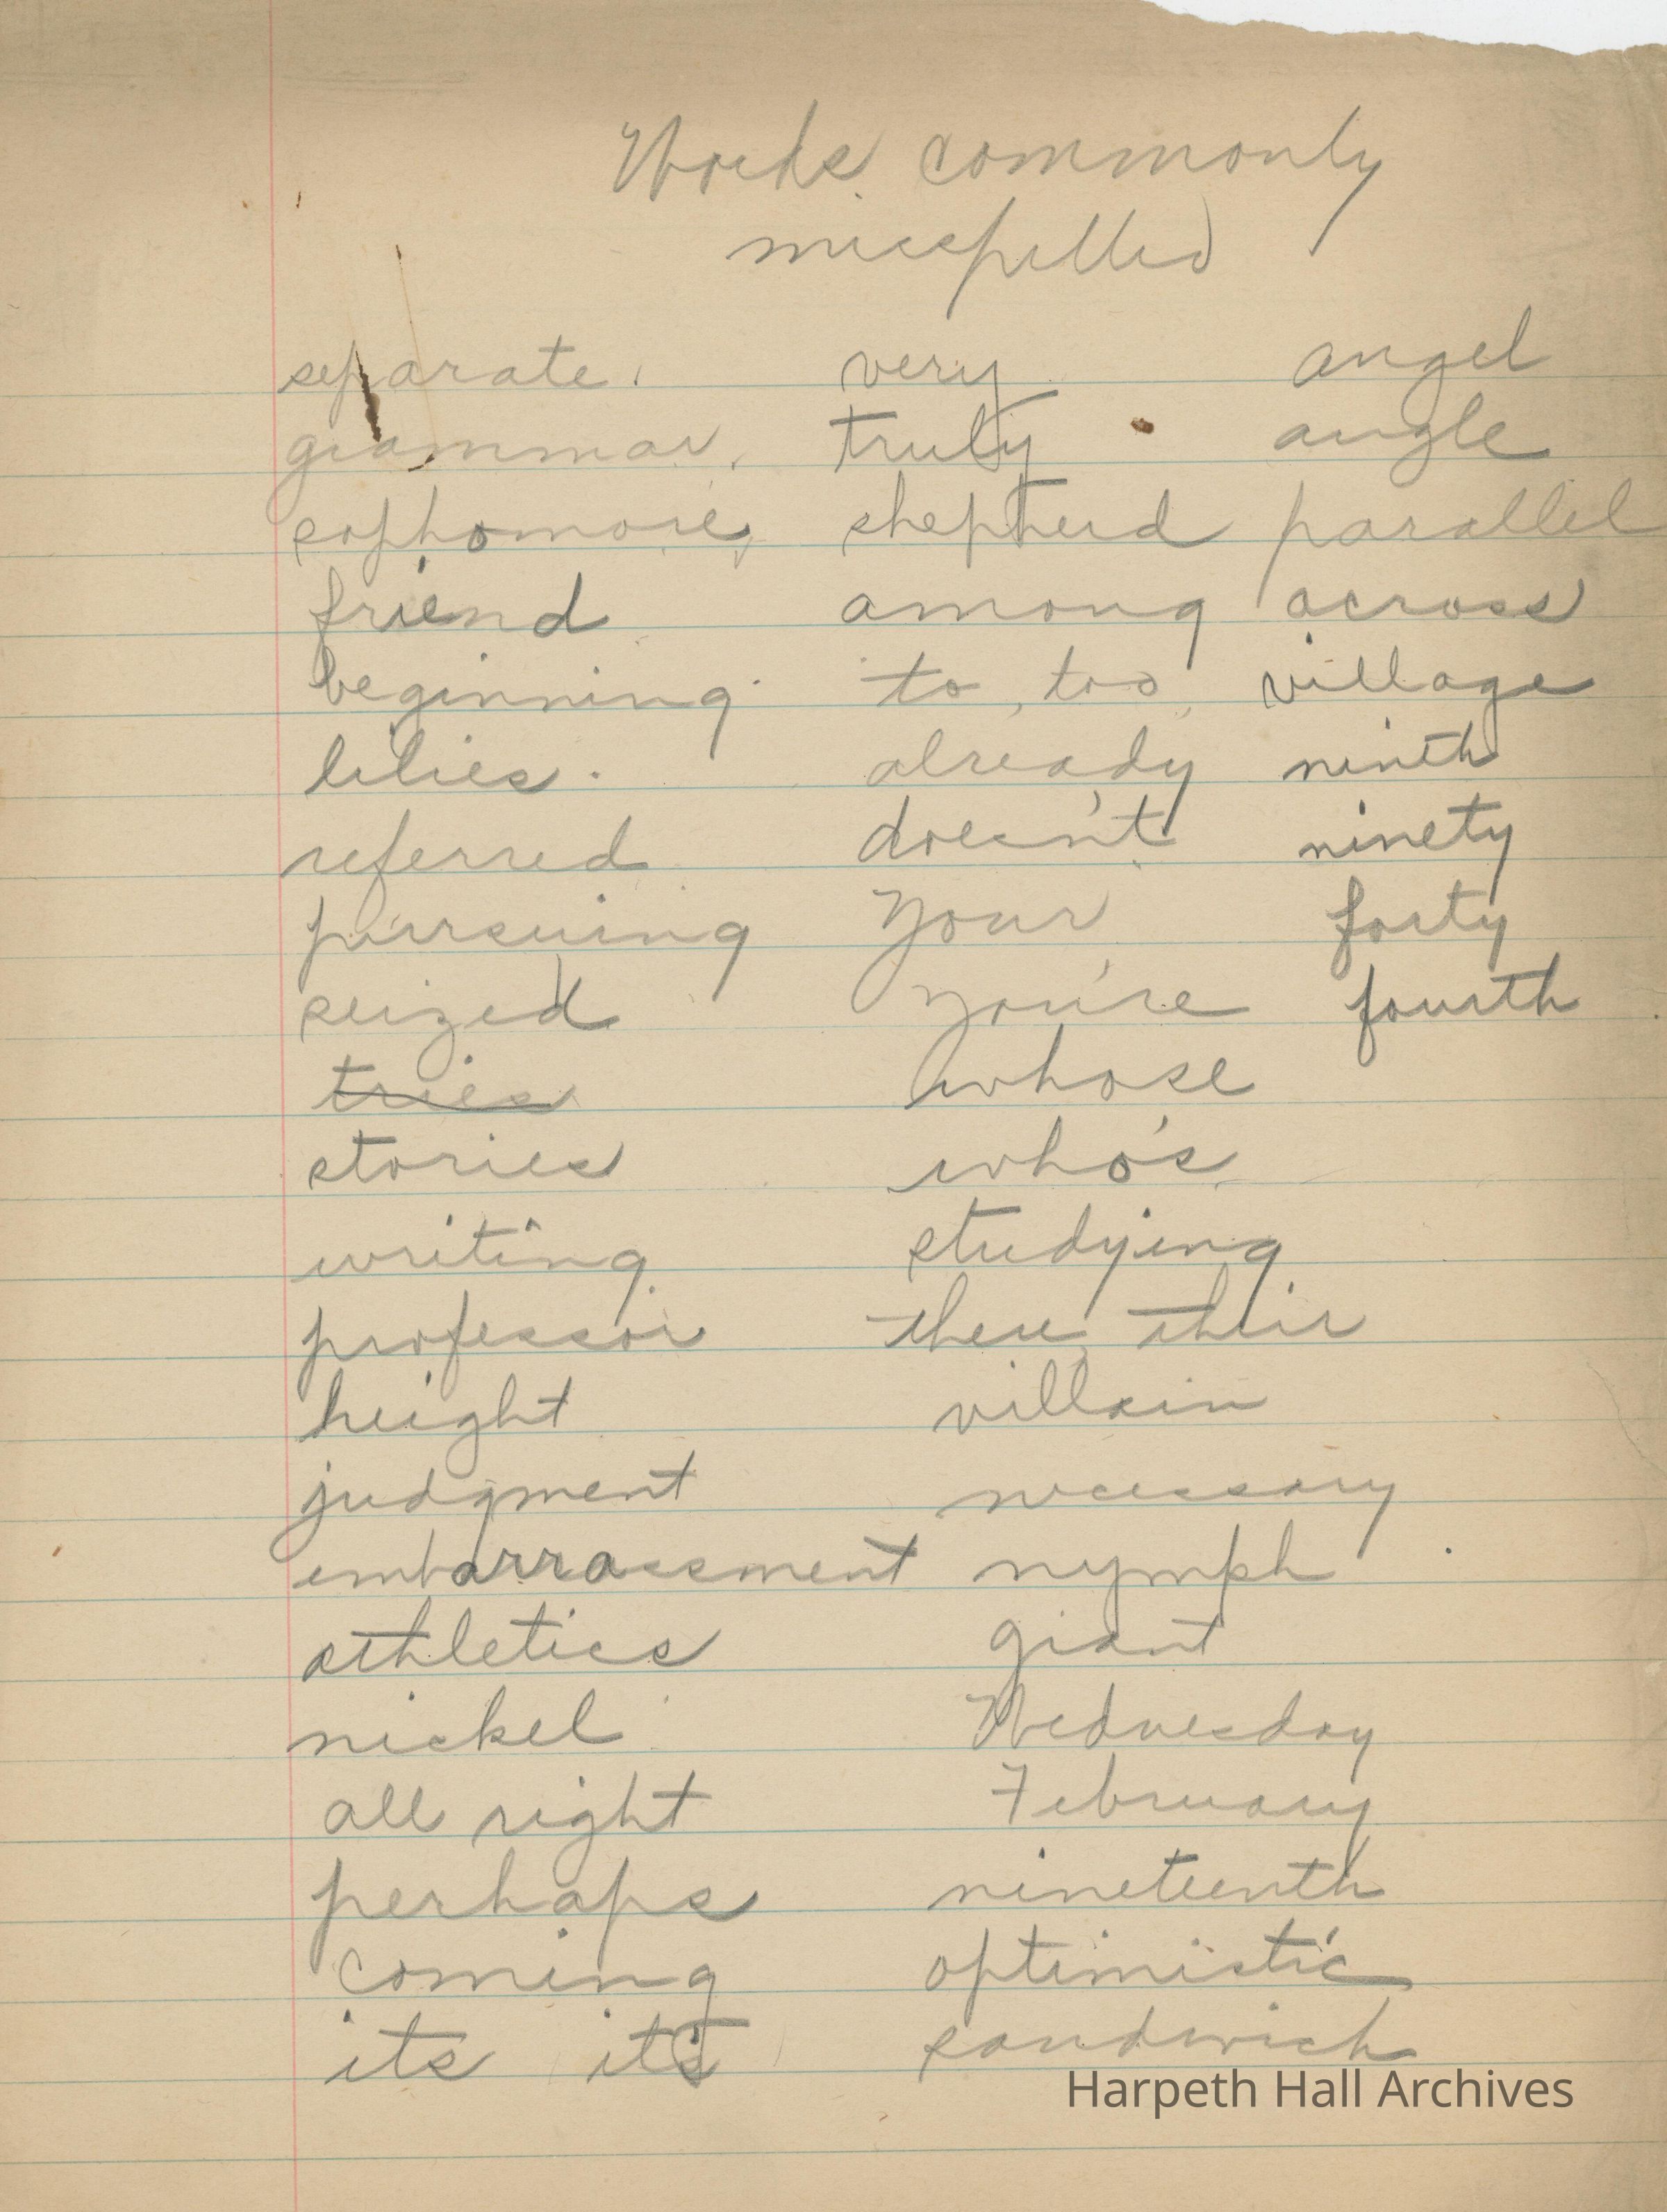 Words commonly
misspelled
separate.
grammar.
sophomore,
friend
beginning
lilies.
referred
pursuing
seized
tries
stories
writing
professor
height
judgment
embarrassment
athletics
nickel
all right
perhaps
coming
its it's
very
truly
shepherd
among
to, too,
already
doesn't
Your
you're
whose
who's
studying
there, their
villain
necessary
nymph
giant
Wednesday
February
nineteenth
optimistic
sandwich
angel
angle
parallel
across
village
ninth
ninety
forty
fourth
Harpeth Hall Archives